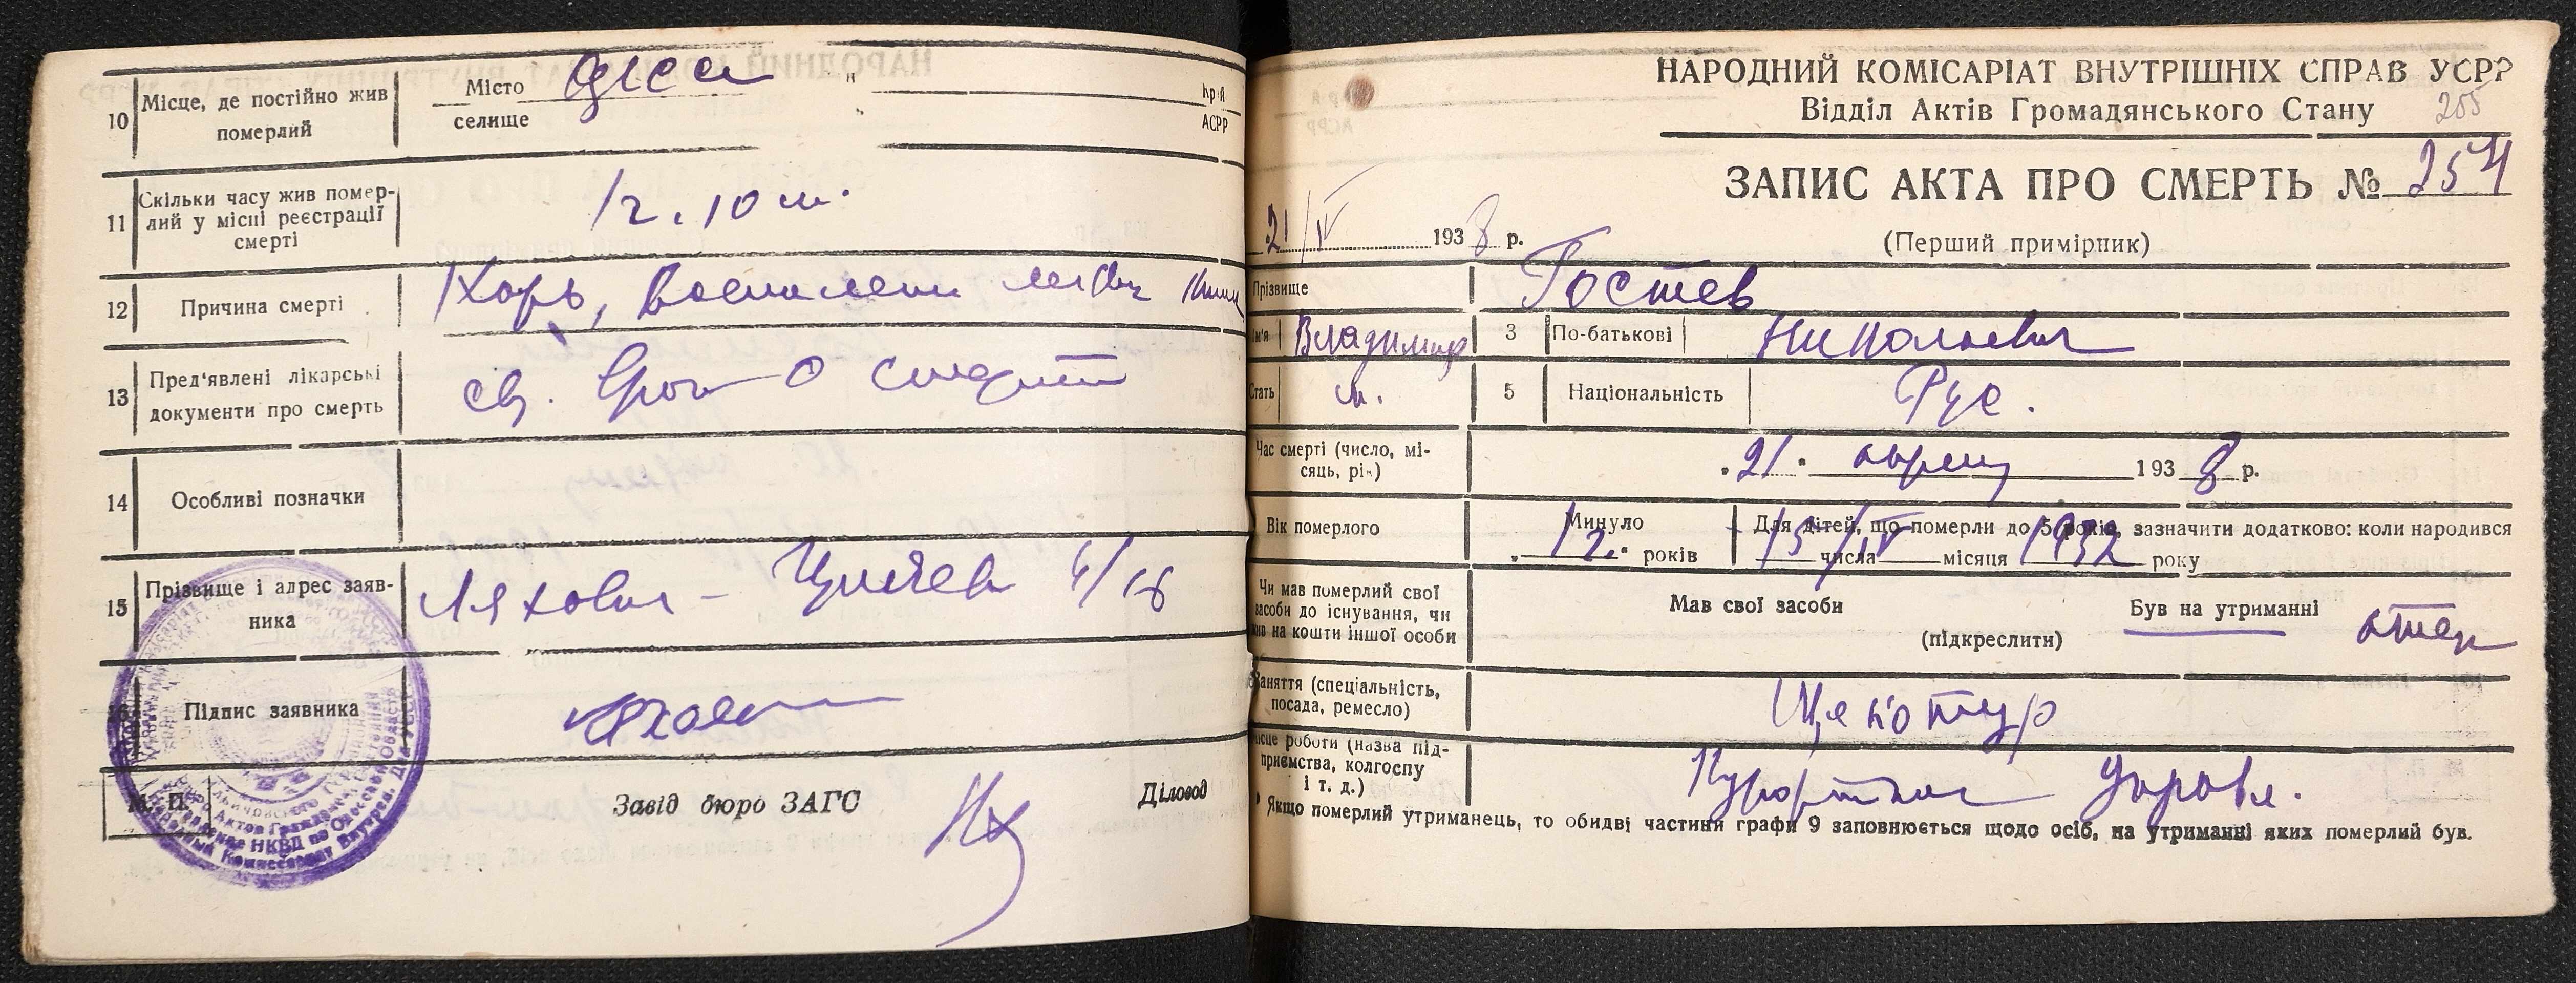 10
Місце, де постійно жив
померлий
Місто Одесса
селище
Край
АСРР
11
Скільки часу жив помер-
лий у місці реєстрації
смерті
1 г. 10 м.
12
Причина смерті
Корь, Воспаление легких
13
Пред'явлені лікарські
документи про смерть
св. Врача о смерти
14
Особливі позначки
15
Прізвище і адрес заяв-
ника
Ляхович -
16
Підпис заявника
М. П.
Завід бюро ЗАГС
Діловод
НАРОДНИЙ КОМІСАРІАТ ВНУТРІШНІХ СПРАВ УСРР
Відділ Актів Громадянського Стану
255
ЗАПИС АКТА ПРО СМЕРТЬ № 254
21/IV 1938 р.
(Перший примірник)
Прізвище
Гостев
Ім'я Владимир 3 По-батькові Николаевич
Стать м. 5 Національність Рус.
Час смерті (число, мі-
сяць, рік)
"21" апреля 1938 р.
Вік померлого
Минуло
"1 г." років
Для дітей, що померли до 5 років, зазначити додатково: коли народився
15 числа IV місяця 1937 року
Чи мав померлий свої
засоби до існування, чи
жив на кошти іншої особи
Мав свої засоби
(підкреслити)
Був на утриманні
отец
Заняття (спеціальність,
посада, ремесло)
Щекотур
Місце роботи (назва під-
приємства, колгоспу
і т. д.)
Курортное Управл.
* Якщо померлий утриманець, то обидві частини графи 9 заповнюється щодо осіб, на утриманні яких померлий був.